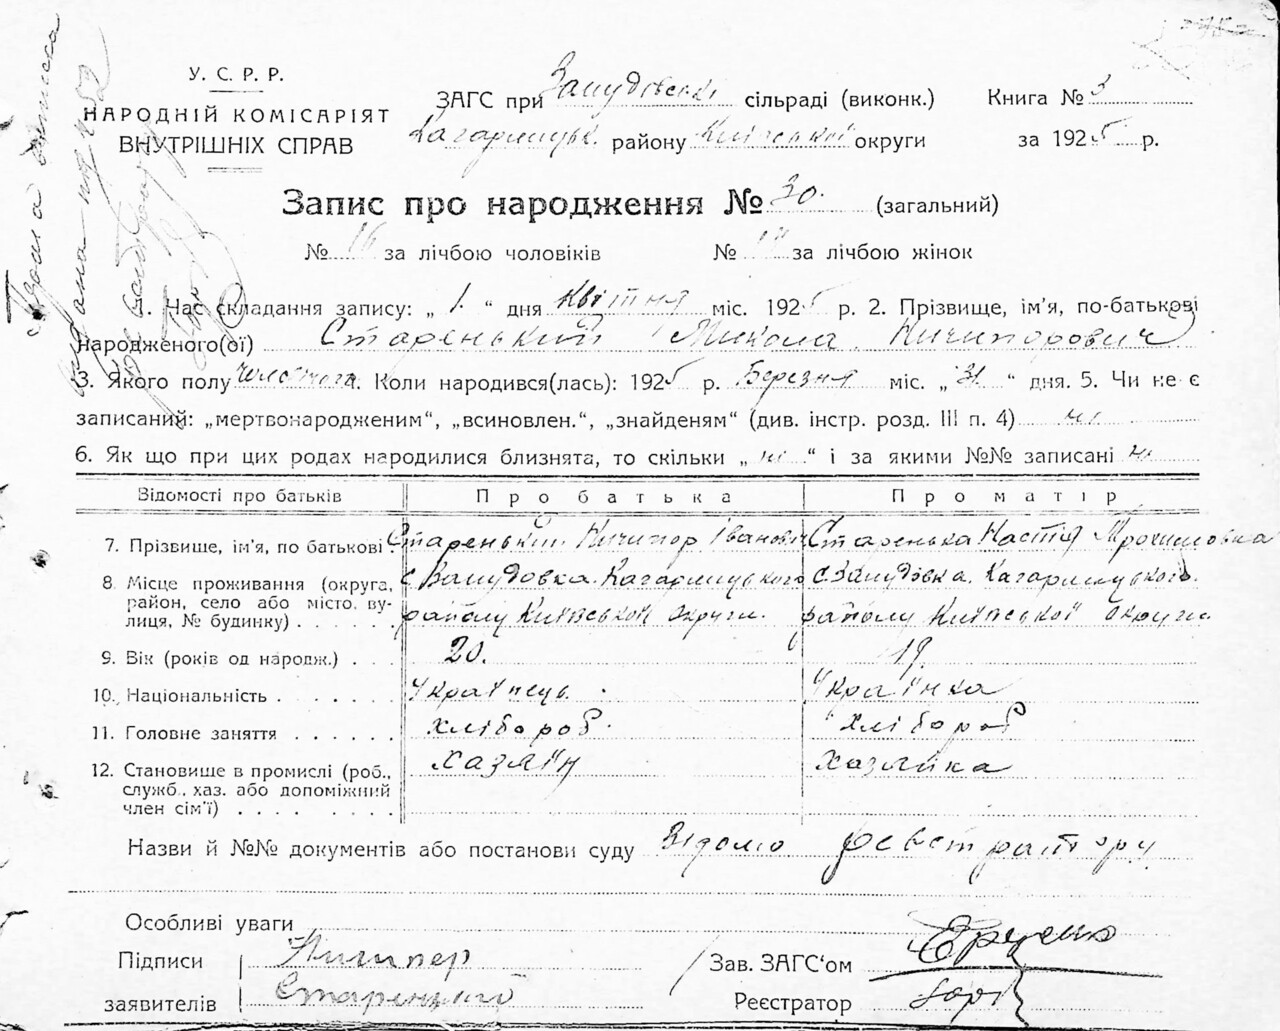 У. С. Р. Р.
НАРОДНІЙ КОМІСАРІЯТ
ВНУТРІШНІХ СПРАВ
ЗАГС при сільраді (виконк.) Книга № 3
Кагарлицьк. району Київської округи за 1925 р.
Запис про народження № 30. (загальний)
№ 16 за лічбою чоловіків № за лічбою жінок
1. Час складання запису: „ 1 “ дня Квітня міс. 1925 р. 2. Прізвище, ім'я, по-батькові
народженого(ої) Старенький Микола Ничипорович
3. Якого полу чоловічого. Коли народився(лась): 1925 р. Березня міс. „ 31 “ дня. 5. Чи не є
записаний: „мертвонародженим“, „всиновлен.“, „знайденям“ (див. інстр. розд. III п. 4) ні
6. Як що при цих родах народилися близнята, то скільки „ ні “ і за якими №№ записані ні
Відомості про батьків Про батька Про матір
7. Прізвише, ім'я, по батькові Старенький Ничипор Іванович Старенька Настя
8. Місце проживання (округа, с. Кагарлицького с. Кагарлицького
район, село або місто, ву-
лиця, № будинку) району Київської округи. району Київської округи.
9. Вік (років од народж.) 20. 19.
10. Національність Українець Українка
11. Головне заняття хлібороб хлібороб
12. Становише в промислі (роб., хазяїн хазяйка
служб., хаз. або допоміжний
член сім'ї)
Назви й №№ документів або постанови суду Відомо реєстратору
Особливі уваги
Підписи Ничипер Зав. ЗАГС'ом
заявителів Реєстратор